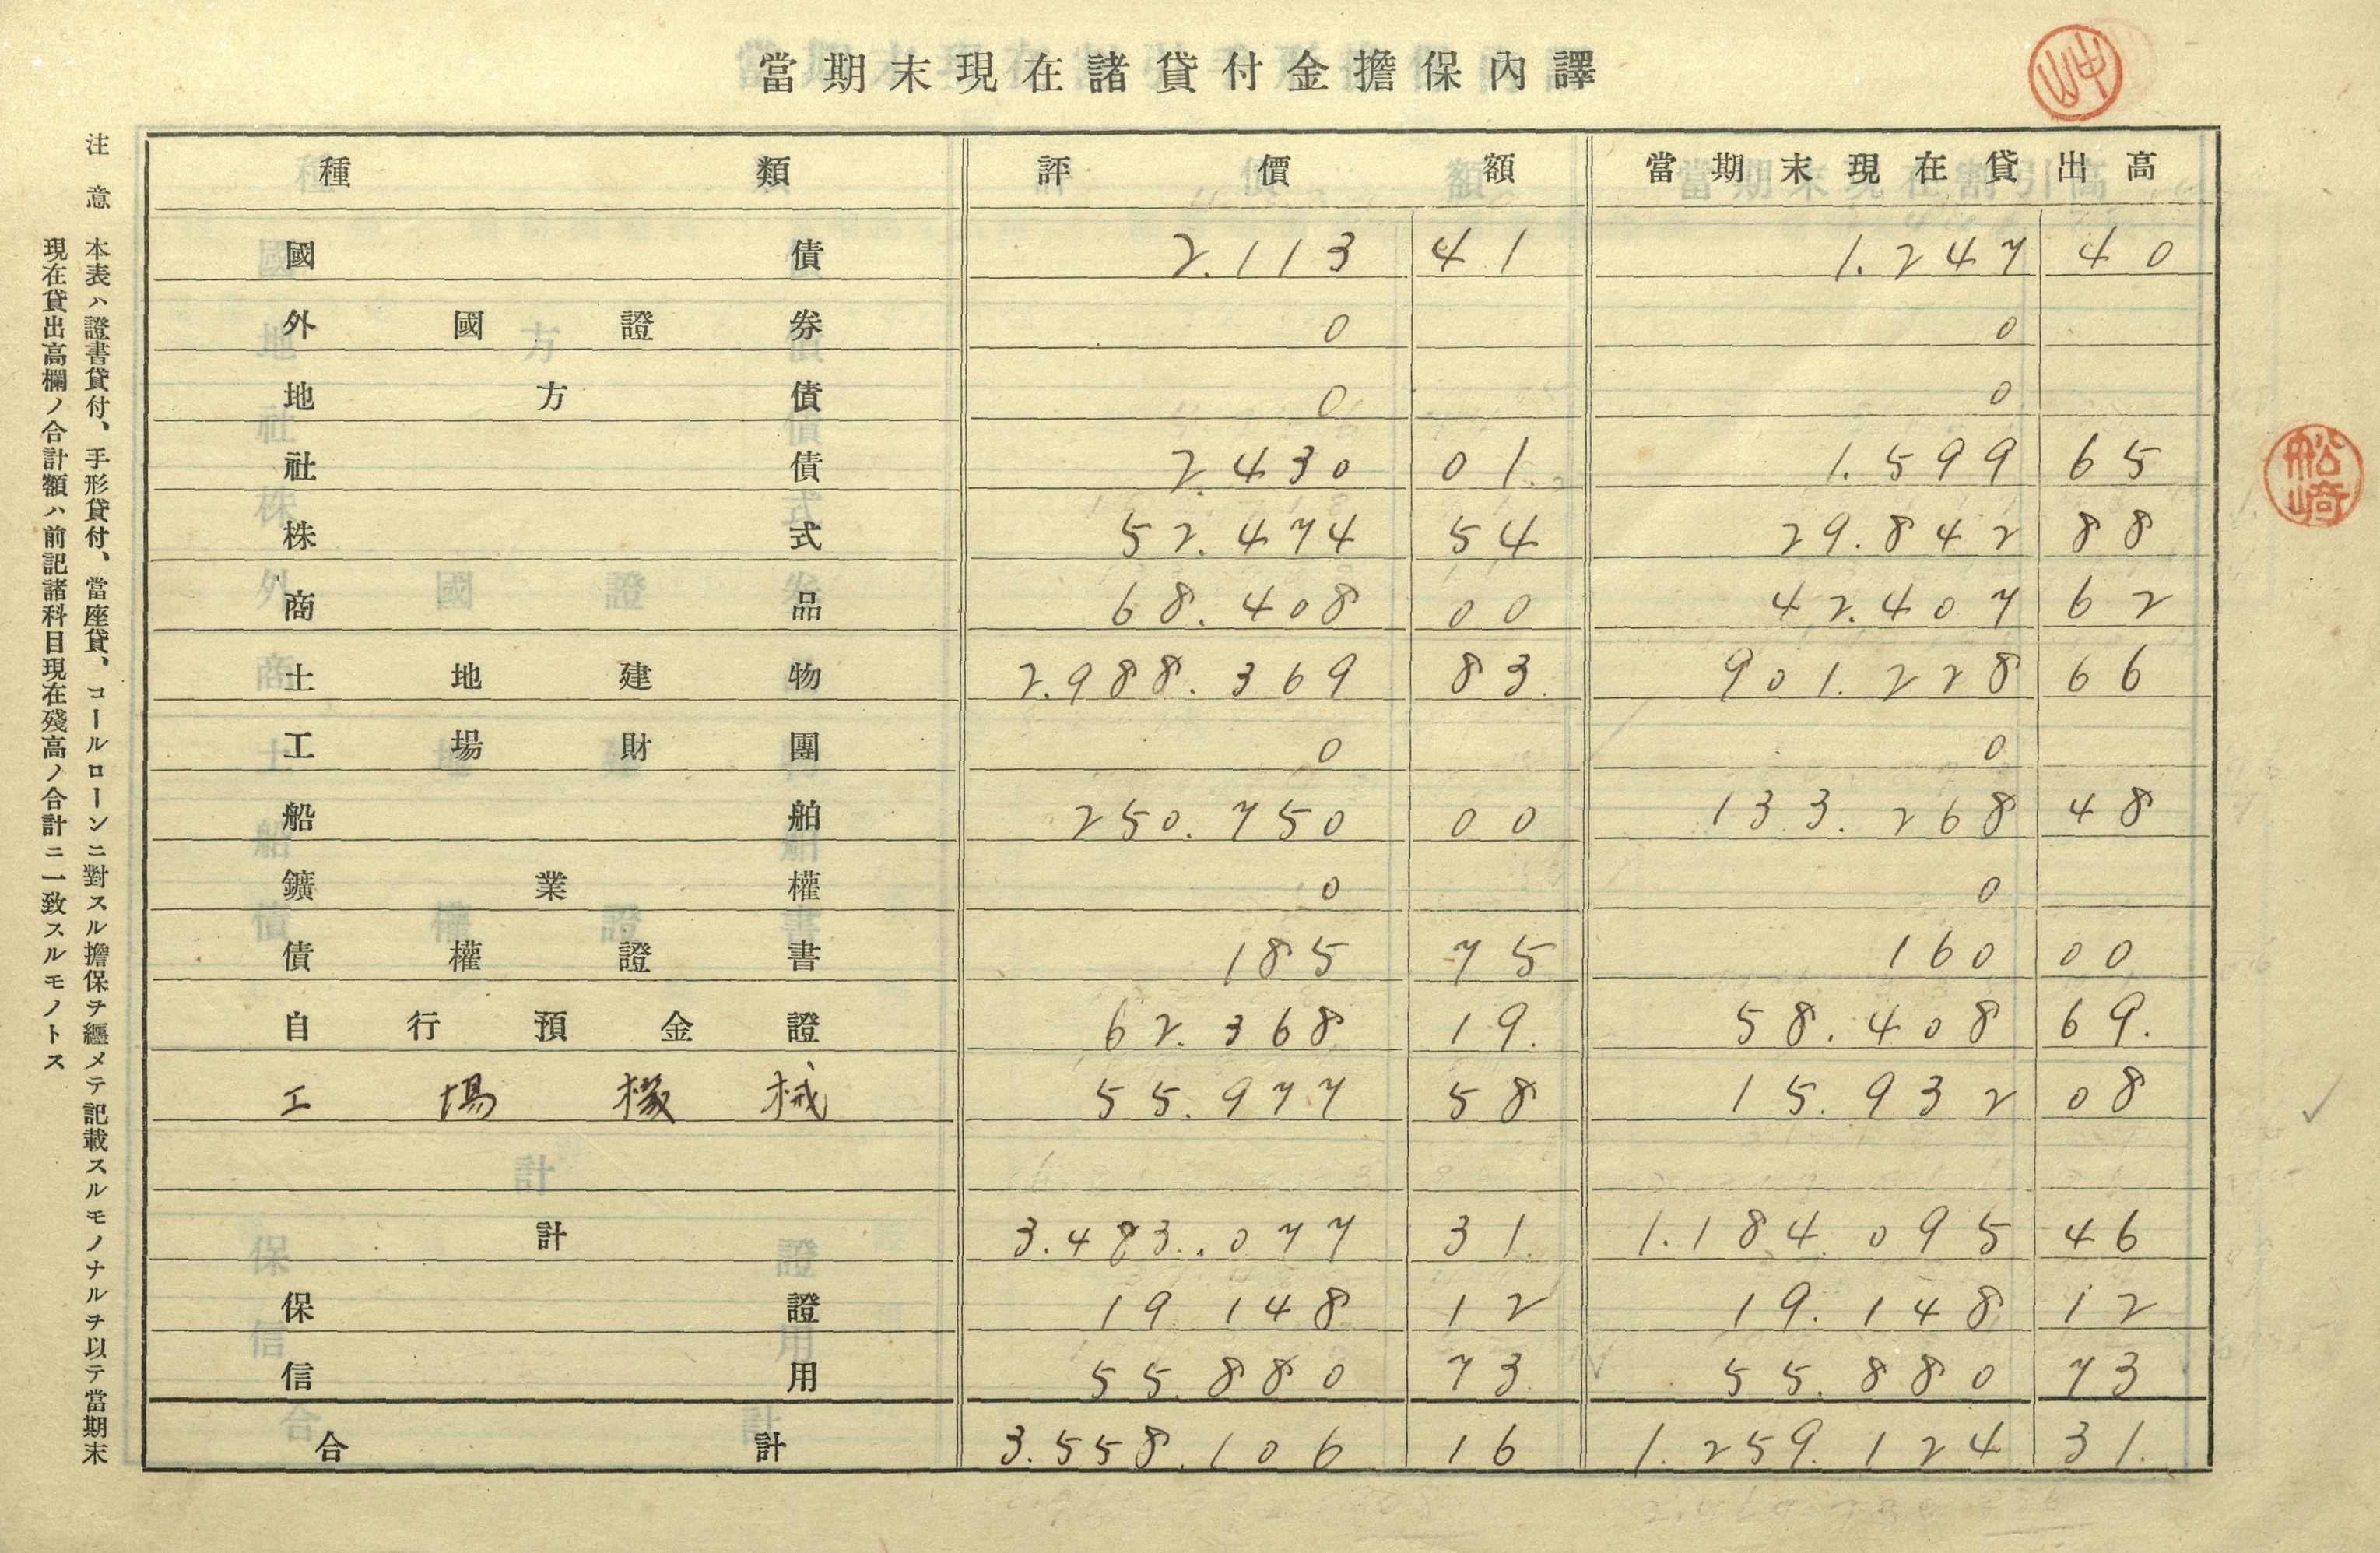 當期末現在諸貸付金擔保內譯
種類 評價額 當期末現在貸出高
國債 2.113 41 1.247 40
外國證券 0 0
地方債 0 0
社債 2.430 01. 1.599 65
株式 52.474 54 29.842 88
商品 68.408 00 42.407 62
土地建物 2.988.369 83. 901.228 66
工場財團 0 0
船舶 250.750 00 133.268 48
鑛業權 0 0
債權證書 185 75 160 00
自行預金證 62.368 19. 58.408 69.
工場機械 55.977 58 15.932 08
計 3.483.077 31. 1.184.095 46
保證 19 148 12 19.148 12
信用 55.880 73. 55.880 73
合計 3.558.106 16 1.259.124 31.
注意 本表ハ證書貸付、手形貸付、當座貸、コールローンニ對スル擔保ヲ纒メテ記載スルモノナルヲ以テ當期末
現在貸出高欄ノ合計額ハ前記諸科目現在殘高ノ合計ニ一致スルモノトス
松崎